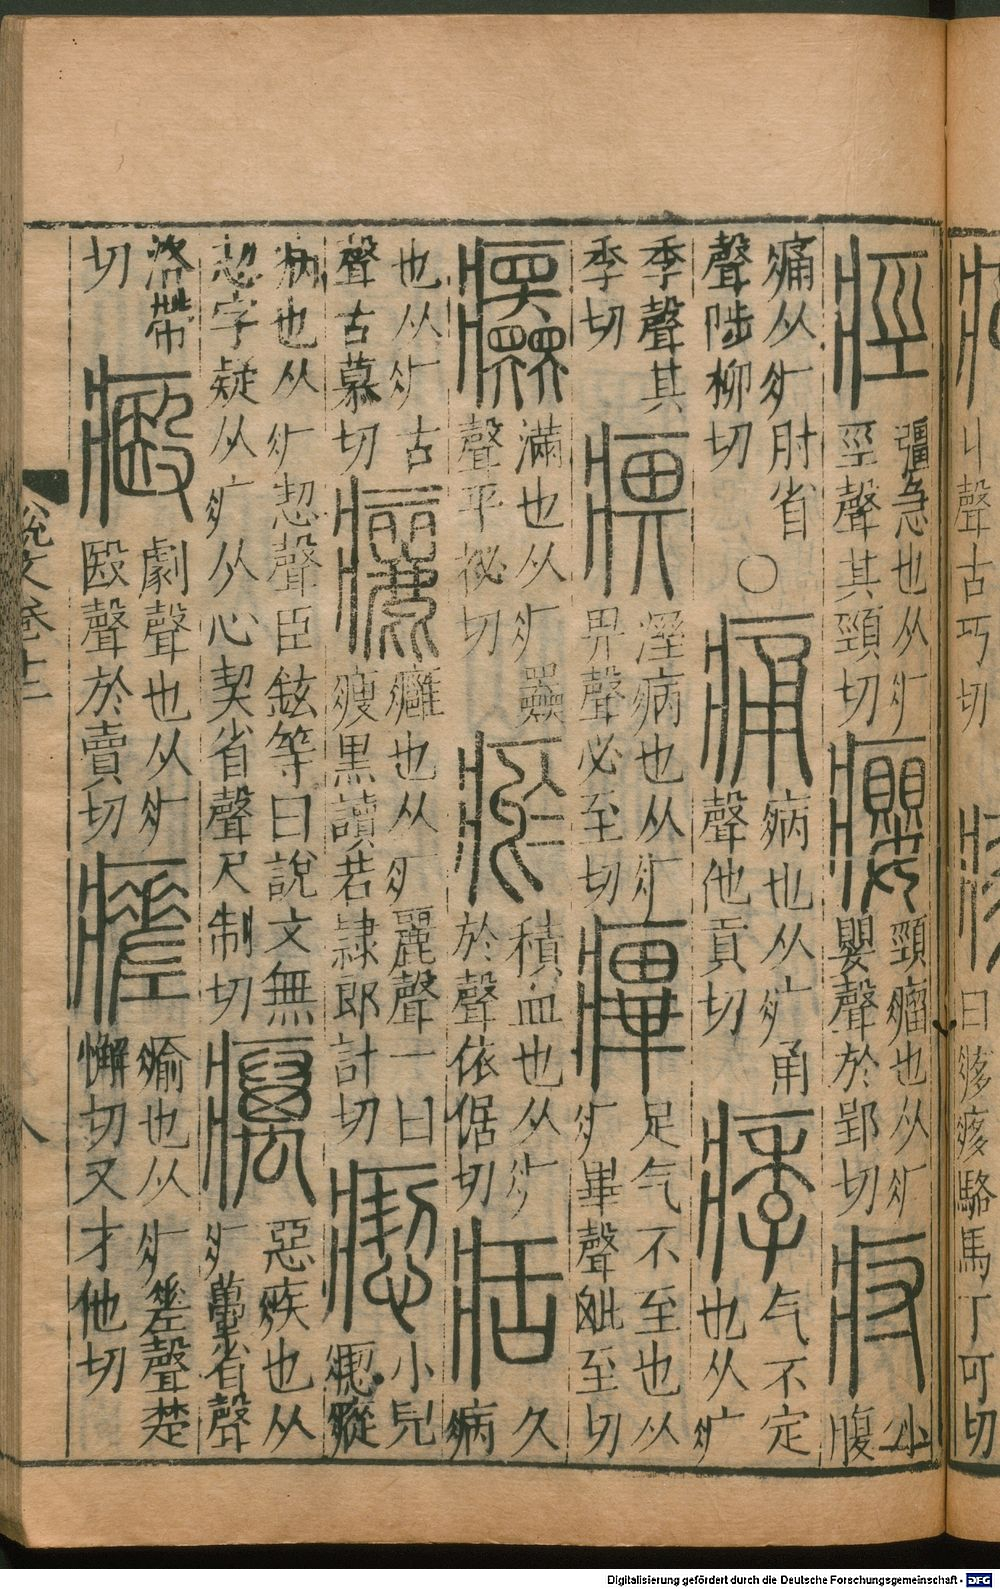 丩聲古巧切
曰痑痑駱馬丁可切
痙彊急也从疒巠聲其頸切癭頸瘤也从疒嬰聲於郢切疛小腹
痛从疒肘省聲陟柳切○痛病也从疒甬聲他貢切痵气不定也从疒
季聲其季切痹溼病也从疒畀聲必至切㿙足气不至也从疒畢聲毗至切
𤷒滿也从疒𡚤聲平祕切瘀積血也从疒於聲依倨切㽽久病
也从疒古聲古慕切㿛癰也从疒麗聲一曰瘦黑讀若隸郎計切瘛小兒瘛瘲
病也从疒恝聲臣鉉等曰說文無恝字疑从疒从心契省聲尺制切癘惡疾也从疒蠆省聲
洛帶切㿄劇聲也从疒殹聲於賣切瘥瘉也从疒𢀩聲楚懈切又才他切
說文卷十二
八
Digitalisierung gefördert durch die Deutsche Forschungsgemeinschaft - DFG